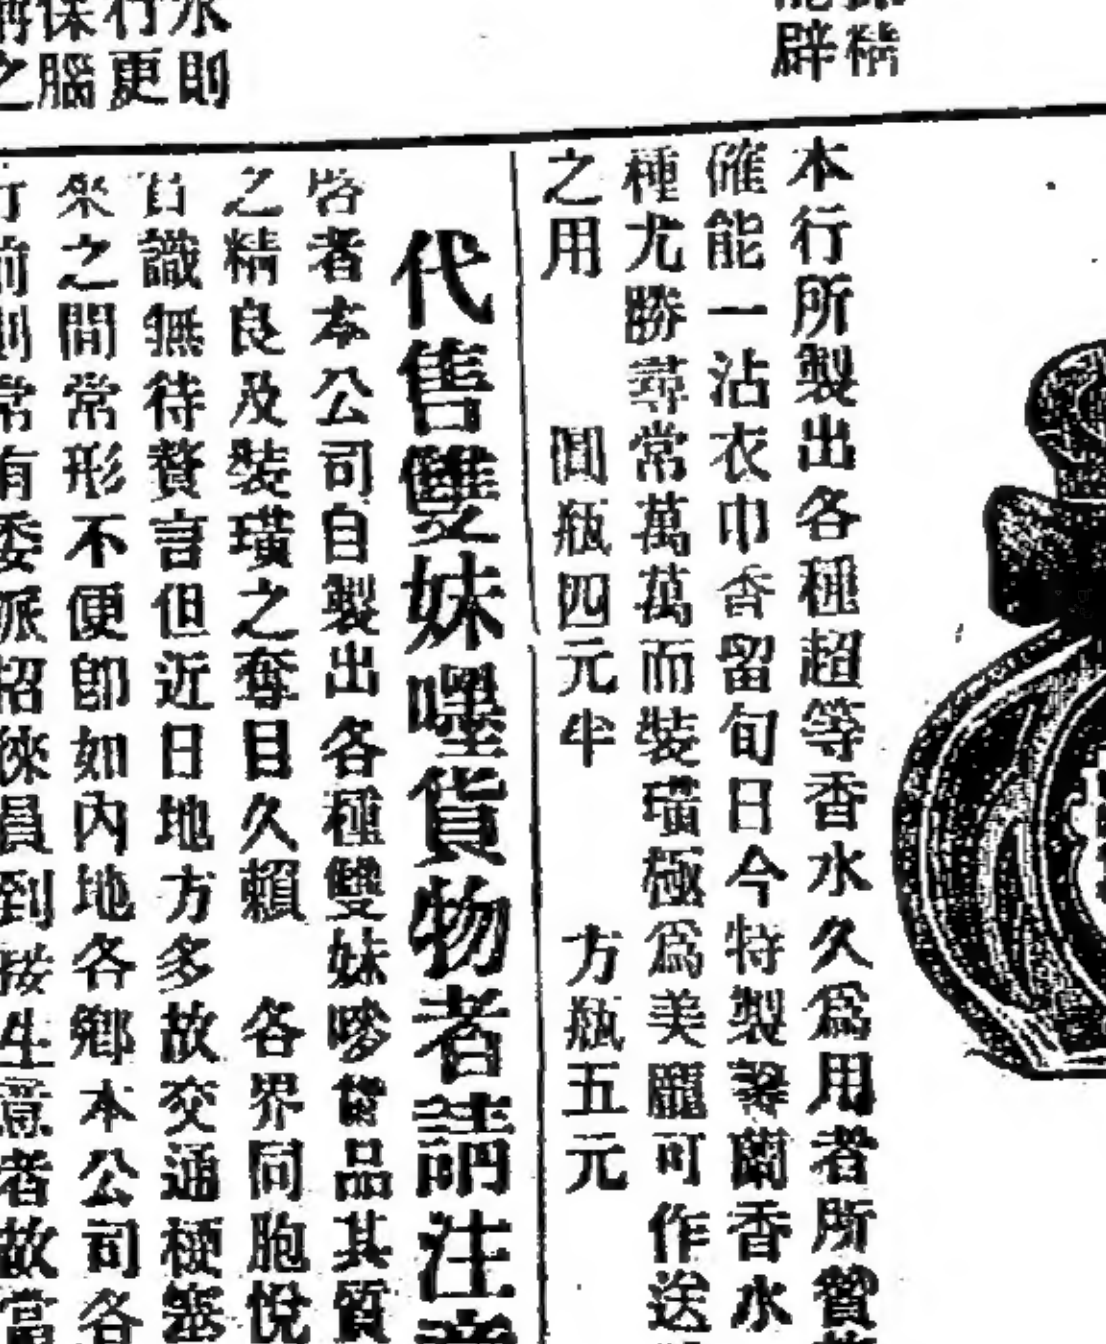 精
辟
水則
行更
保腦
之
本行所製出各種超等香水久爲用者所贊
確能一沾衣巾香留旬日今特製馨蘭香水
種尤勝尋常萬萬而裝璜極爲美麗可作送
之用 圓瓶四元半 方瓶五元
代售雙妹嘜貨物者請注意
啓者本公司自製出各種雙妹嘜貨品其質
之精良及裝璜之奪目久賴 各界同胞悅
識無待贅言但近日地方多故交通梗塞
來之間常形不便卽如內地各鄉本公司各
前則常有委派招徠員到接生意者故當